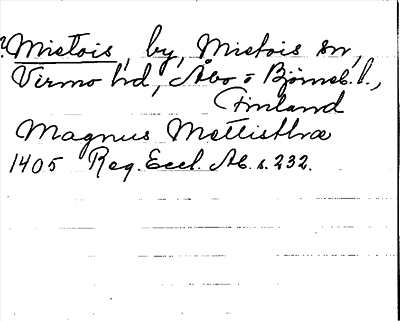 ? Mietois, by, Mietois sn,
Virmo hd, Åbo o Björneb. l.,
Finland
Magnus Mettisthræ
1405 Reg. Eccl. Ab. s. 232.